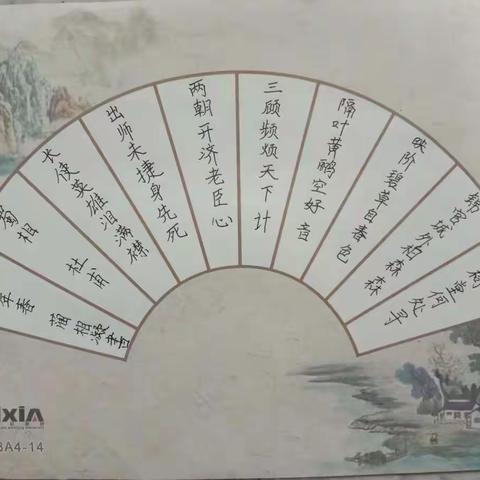 堂何处寻
锦官城外柏森森
映阶碧草自春色
隔叶黄鹂空好音
三顾频烦天下计
两朝开济老臣心
出师未捷身先死
长使英雄泪满襟
蜀相 杜甫
年春 相凝書
ixiA
A4-14